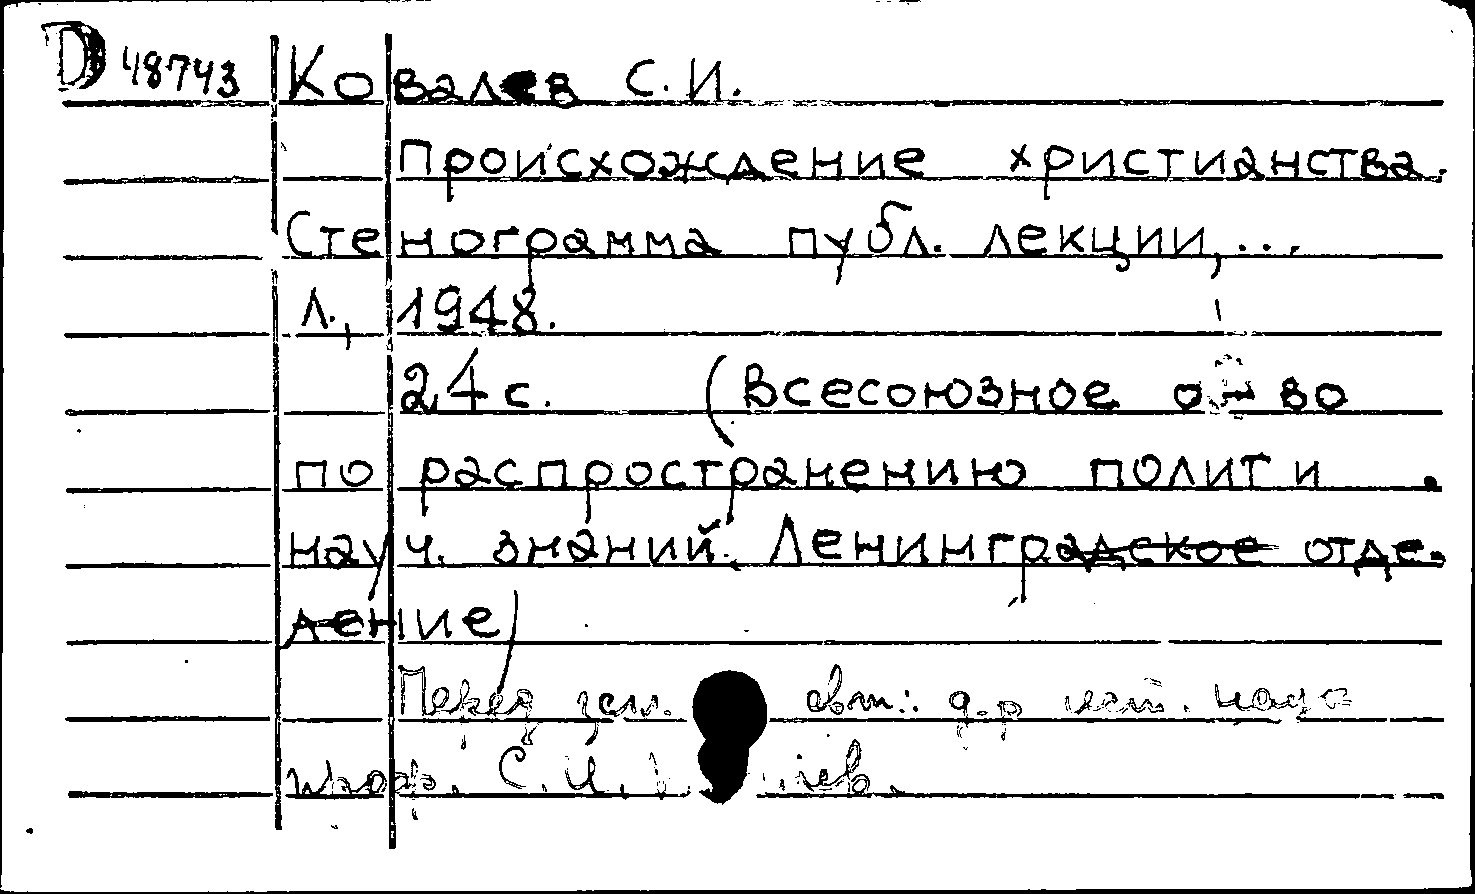 D 48743 Ковалев С. И.
Происхождение христианства.
Стенограмма публ. лекции, ...
Л., 1948.
24 с. (Всесоюзное о-во
по распространению полит и
науч. знаний. Ленинградское отде-
ление)
Перед загл. авт.: д-р ист. наук
проф. С. И.